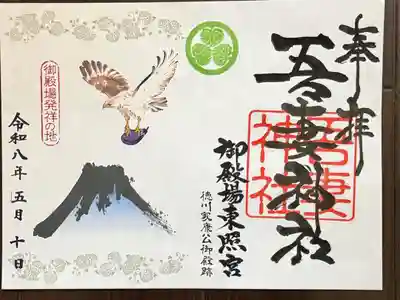 奉拝
吾妻神社
吾妻神社
御殿場東照宮
徳川家康公御殿跡
御殿場発祥の地
令和八年 五月 十日